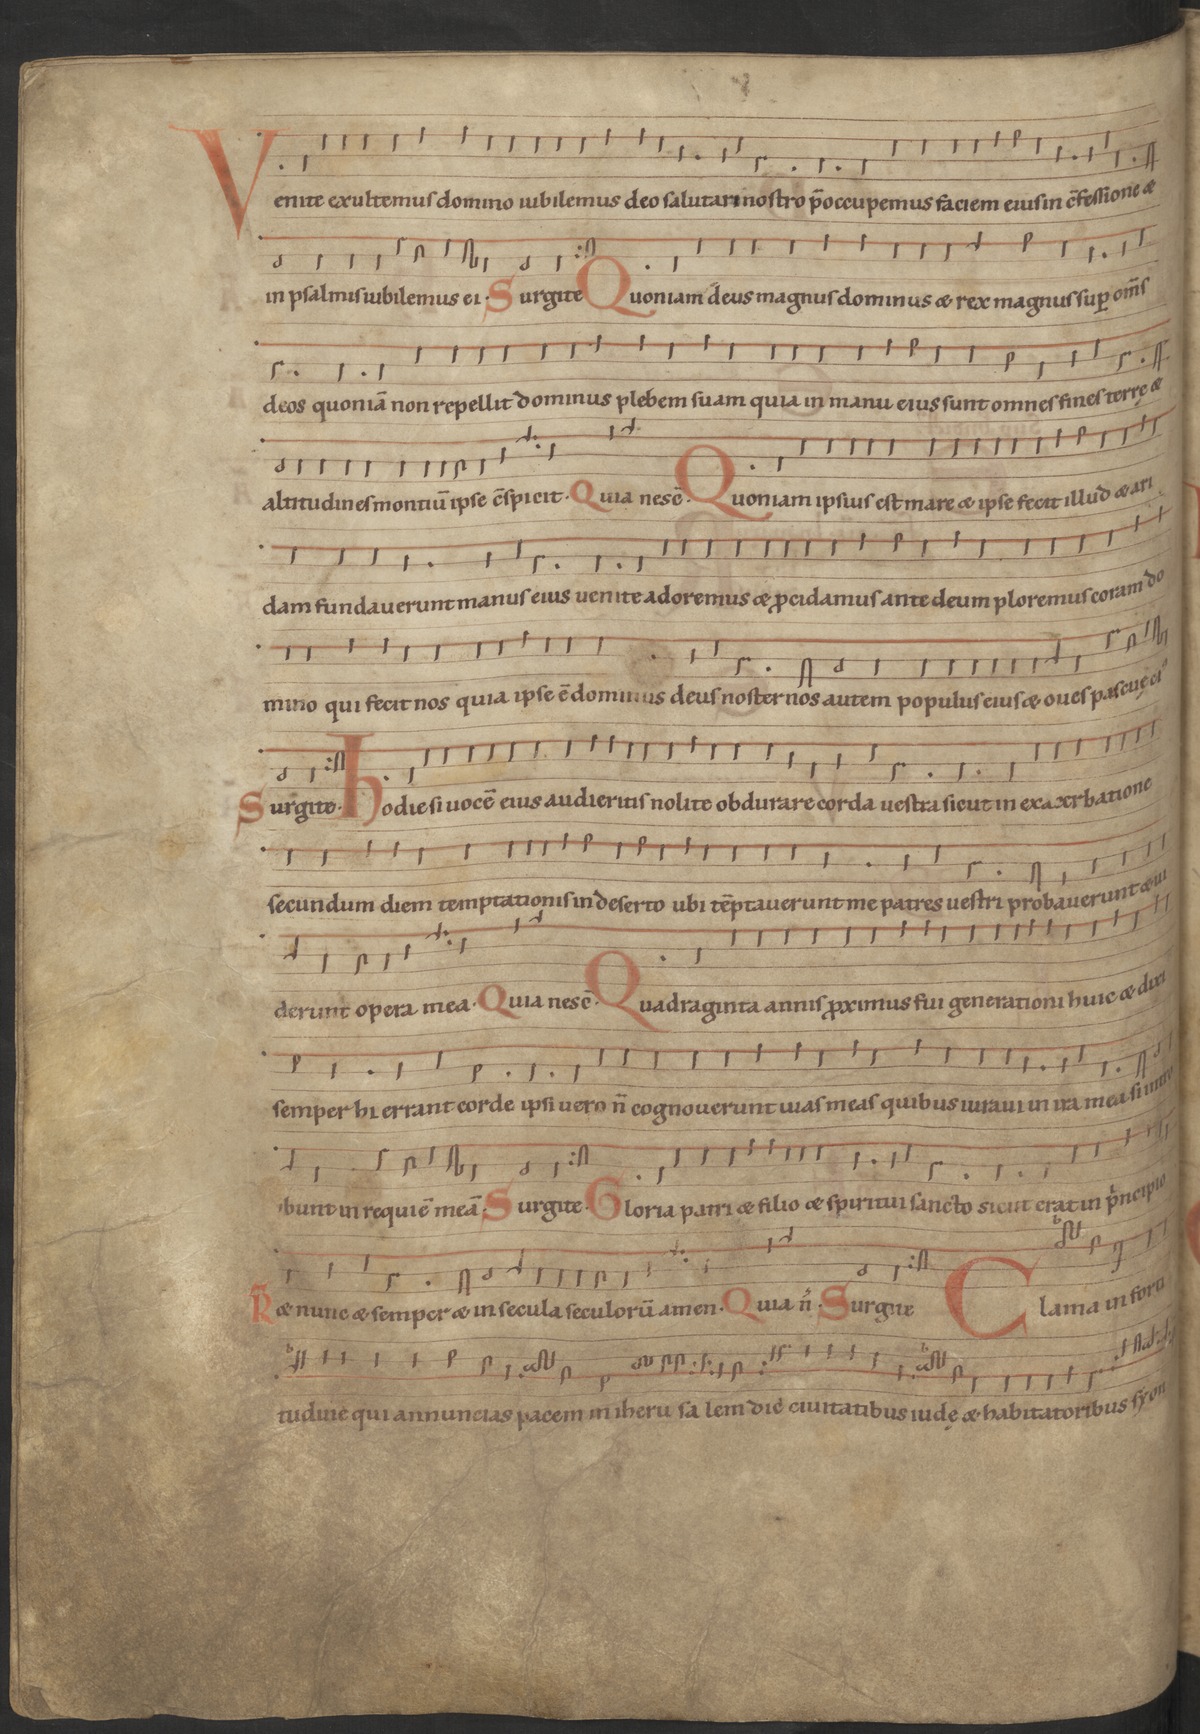 Venite exultemus domino iubilemus deo salutari nostro p̄occupemus faciem eius in c̄fessione &
in psalmis iubilemus ei · Surgite Quoniam deus magnus dominus & rex magnus sup om̄s
deos quoniā non repellit dominus plebem suam quia in manu eius sunt omnes fines terrę &
altitudines montiū ipse c̄spicit · Quia nescē · Quoniam ipsius est mare & ipse fecit illud & ari
dam fundauerunt manus eius uenite adoremus & p̄cidamus ante deum ploremus coram do
mino qui fecit nos quia ipse ē dominus deus noster nos autem populus eius & oues pascuę ei᾿
Surgite · Hodie si uocē eius audieritis nolite obdurare corda uestra sicut in exacerbatione
secundum diem temptationis in deserto ubi tēptauerunt me patres uestri probauerunt & ui
derunt opera mea · Quia nescē · Quadraginta annis ꝓximus fui generationi huic & dixi
semper hi errant corde ipsi uero n̄ cognouerunt uias meas quibus iuraui in ira mea si intro
ibunt in requiē meā · Surgite · Gloria patri & filio & spiritui sancto sicut erat in p̄ncipio
R̄ & nunc & semper & in secula seculorū amen · Quia n̄ · Surgite Clama in forti
tudine qui annuncias pacem in iherusalem dic ciuitatibus iudę & habitatoribus syon